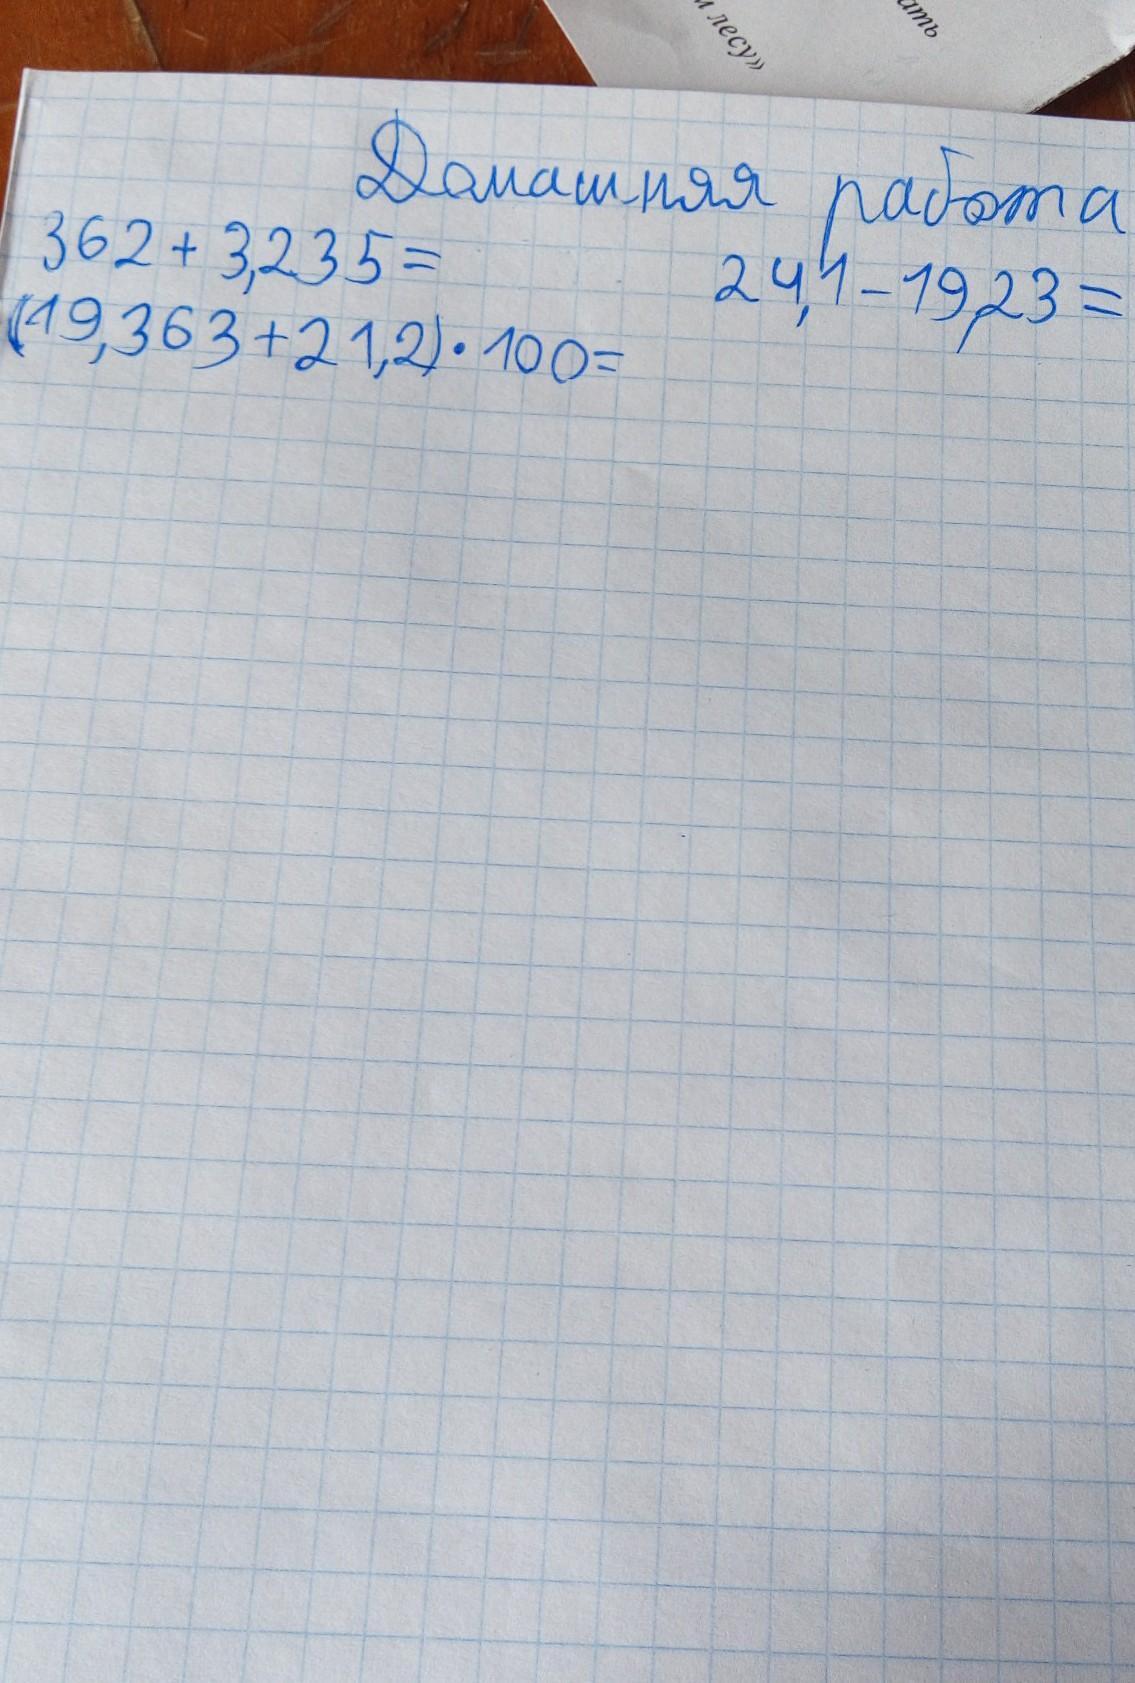 лесу»
ать
Домашняя работа
362+3,235=
24,1-19,23=
(19,363+21,2)·100=